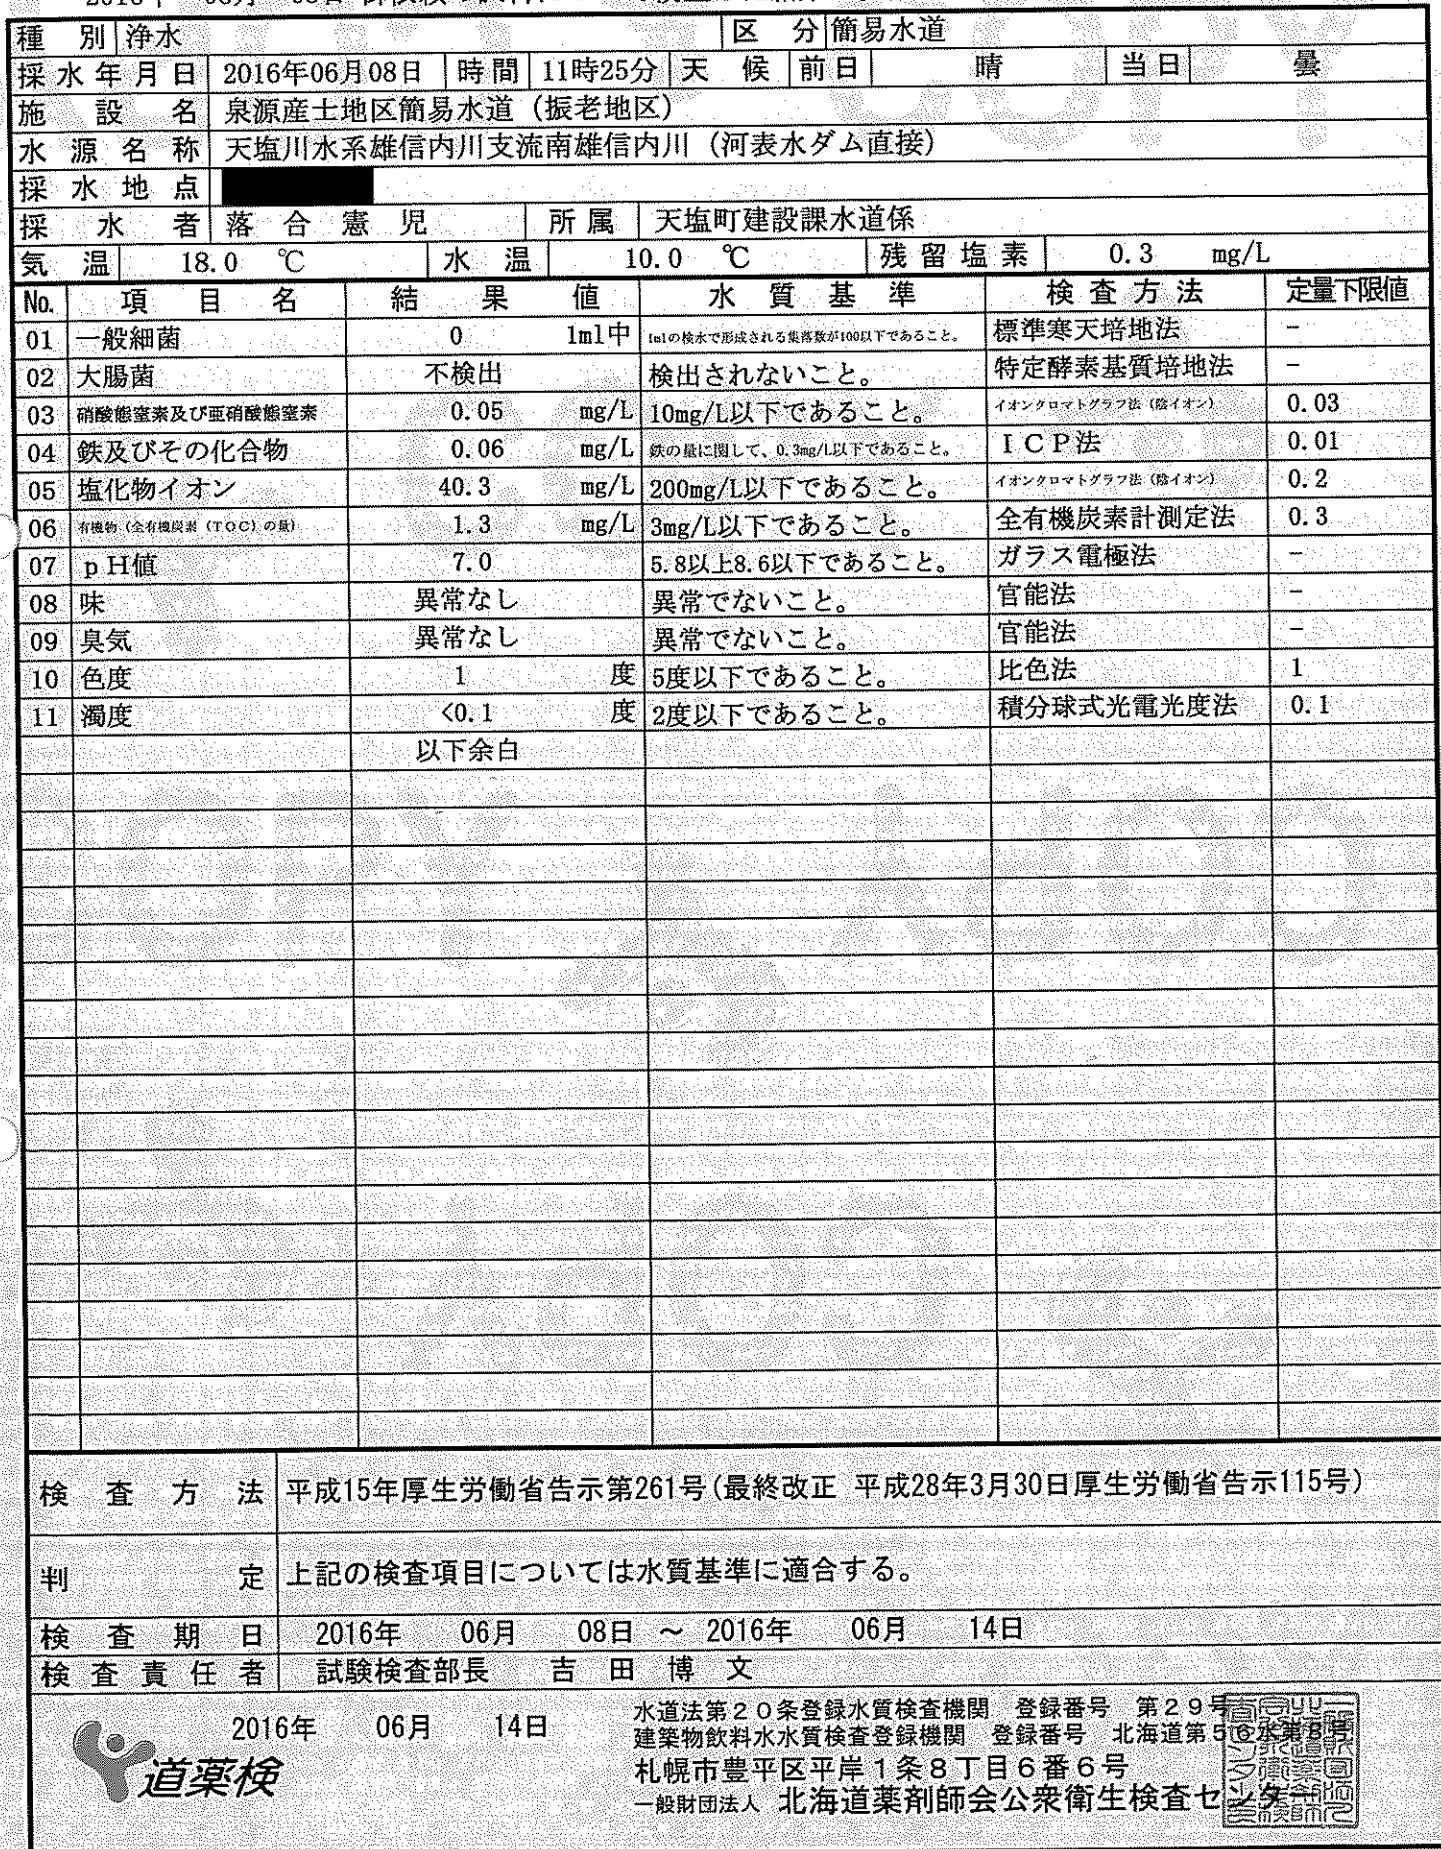 種別 浄水 区分 簡易水道
採水年月日 2016年06月08日 時間 11時25分 天候 前日 晴 当日 曇
施設名 泉源産士地区簡易水道（振老地区）
水源名称 天塩川水系雄信内川支流南雄信内川（河表水ダム直接）
採水地点
採水者 落合憲児 所属 天塩町建設課水道係
気温 18.0 ℃ 水温 10.0 ℃ 残留塩素 0.3 mg/L
No. 項目名 結果値 水質基準 検査方法 定量下限値
01 一般細菌 0 1ml中 1mlの検水で形成される集落数が100以下であること。 標準寒天培地法 －
02 大腸菌 不検出 検出されないこと。 特定酵素基質培地法 －
03 硝酸態窒素及び亜硝酸態窒素 0.05 mg/L 10mg/L以下であること。 イオンクロマトグラフ法（陰イオン） 0.03
04 鉄及びその化合物 0.06 mg/L 鉄の量に関して、0.3mg/L以下であること。 ＩＣＰ法 0.01
05 塩化物イオン 40.3 mg/L 200mg/L以下であること。 イオンクロマトグラフ法（陰イオン） 0.2
06 有機物（全有機炭素（TOC）の量） 1.3 mg/L 3mg/L以下であること。 全有機炭素計測定法 0.3
07 ｐＨ値 7.0 5.8以上8.6以下であること。 ガラス電極法 －
08 味 異常なし 異常でないこと。 官能法 －
09 臭気 異常なし 異常でないこと。 官能法 －
10 色度 1 度 5度以下であること。 比色法 1
11 濁度 <0.1 度 2度以下であること。 積分球式光電光度法 0.1
以下余白
検査方法 平成15年厚生労働省告示第261号(最終改正 平成28年3月30日厚生労働省告示115号)
判定 上記の検査項目については水質基準に適合する。
検査期日 2016年 06月 08日 ～ 2016年 06月 14日
検査責任者 試験検査部長 吉田博文
水道法第２０条登録水質検査機関 登録番号 第２９号
2016年 06月 14日
建築物飲料水水質検査登録機関 登録番号 北海道第５６水第８号
道薬検
札幌市豊平区平岸１条８丁目６番６号
一般財団法人 北海道薬剤師会公衆衛生検査センター